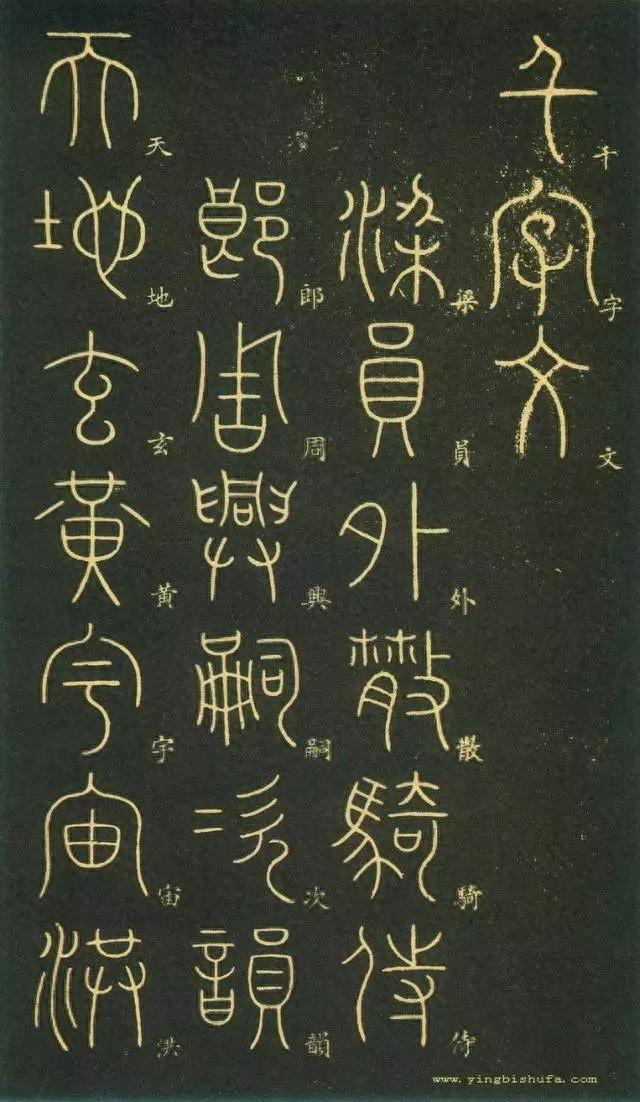 千字文
千字文
梁員外散騎侍
梁員外散騎侍
郎周興嗣次韻
郎周興嗣次韻
天地玄黃宇宙洪
天地玄黃宇宙洪
www.yingbishufa.com